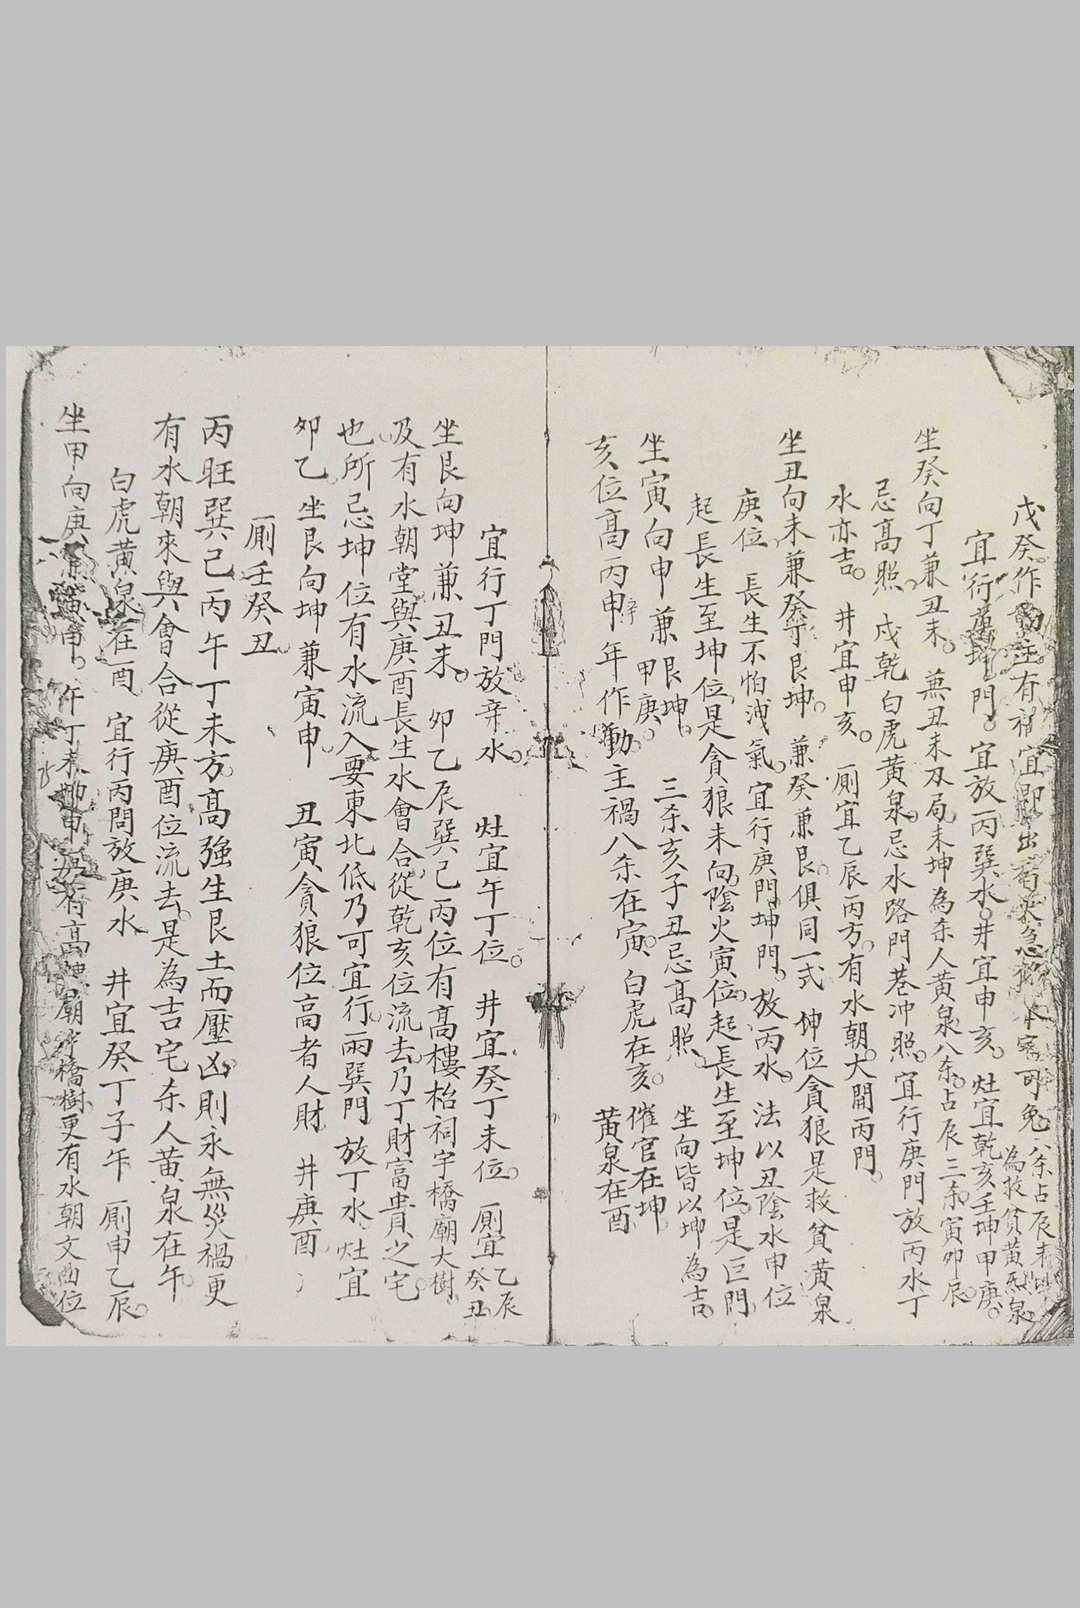 戊癸作 主有禍宜即出 急 可免 八杀占辰未
為救貧黄泉
宜行庚坤門 宜放丙巽水 井宜申亥 灶宜乾亥壬坤甲庚
坐癸向丁兼丑未 無丑未 局未坤為杀人黄泉八杀占辰三杀寅卯辰
忌高照 戍乾白虎黄泉忌水路門巷冲照 宜行庚門放丙水丁
水亦吉 井宜申亥 厠宜乙辰丙方有水朝大開丙門
坐丑向未兼癸丁艮坤 兼癸兼艮俱同一式 坤位貪狼是救貧黄泉
庚位 長生不怕洩氣宜行庚門坤門 放丙水 法以丑陰水申位
起長生至坤位是貪狼未向陰火寅位起長生至坤位是巨門
坐寅向申兼艮坤 三杀亥子丑忌高照 坐向皆以坤為吉
甲庚
亥位高丙申年作動主禍八杀在寅 白虎在亥 催官在坤
黄泉在酉
宜行丁門放辛水 灶宜午丁位 井宜癸丁未位 厠宜乙辰
癸丑
坐艮向坤兼丑未 卯乙辰巽己丙位有高樓枱祠宇橋廟大樹
及有水朝堂與庚酉長生水會合從乾亥位流去乃丁財富貴之宅
也所忌坤位有水流入要東北低乃可宜行兩巽門 放丁水 灶宜
卯乙 坐艮向坤兼寅申 丑寅貪狼位高者人財 井庚酉
厠壬癸丑
丙旺巽己丙午丁未方高強生艮土而壓凶則永無災禍更
有水朝來與會合從庚酉位流去是為吉宅杀人黄泉在午
白虎黄泉在酉 宜行丙門放庚水 井宜癸丁子午 厠申乙辰
坐甲向庚兼寅申 午丁未坤申 有高 廟 橋樹更有水朝文曲位